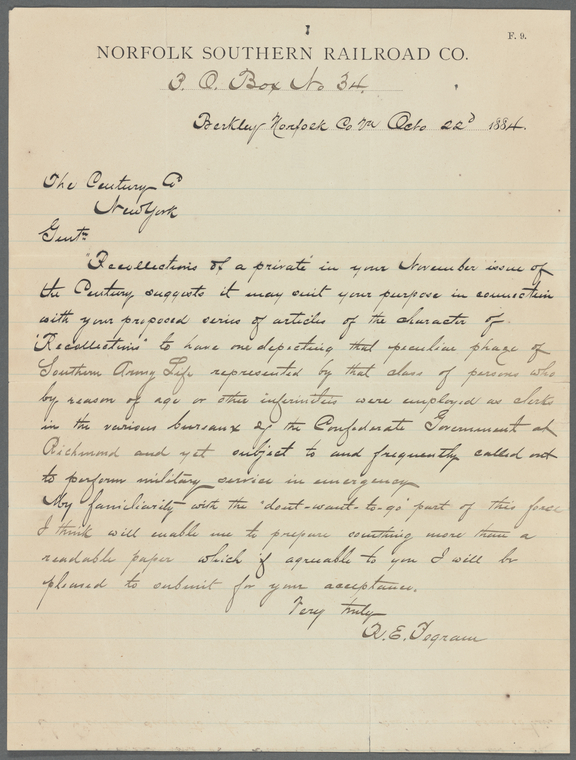 F. 9.
NORFOLK SOUTHERN RAILROAD CO.
P. O. Box No 34.
Berkley Norfolk Co Va Octo 22d 1884.
The Century Co
New York
Gents
"Recollections of a private" in your November issue of
the Century suggests it may suit your purpose in connection
with your proposed series of articles of the character of
"Recollections" to have one depicting that peculiar phaze of
Southern Army Life represented by that class of persons who
by reason of age or other infirmities were employed as clerks
in the various bureaux of the Confederate Government at
Richmond and yet subject to and frequently called out
to perform military service in emergency
My familiarity with the "dont-want-to-go" part of this force
I think will enable me to prepare something more than a
readable paper which if agreeable to you I will be
pleased to submit for your acceptance.
Very truly
W. E. Tegram